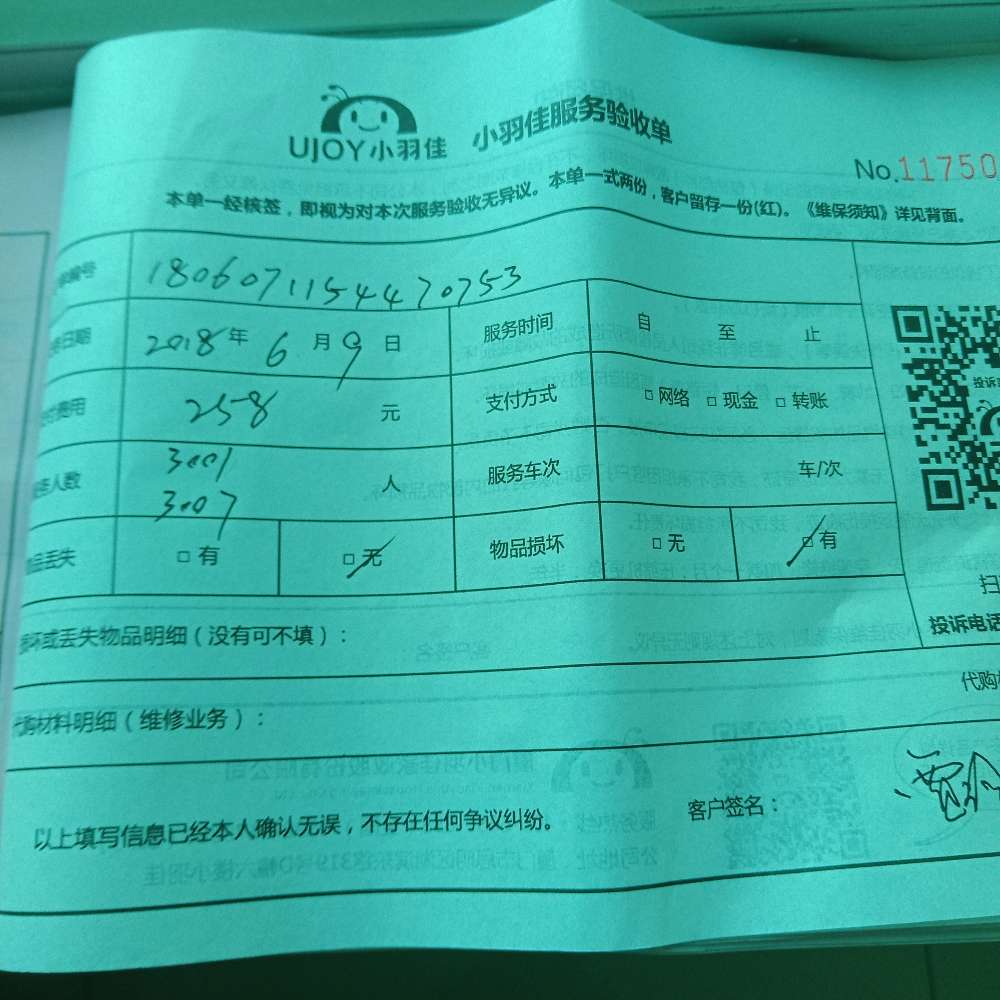 UJOY小羽佳 小羽佳服务验收单
No.11750
本单一经核签，即视为对本次服务验收无异议。本单一式两份，客户留存一份(红)。《维保须知》详见背面。
编号 1806071154470753
日期 2018年 6月9日 服务时间 自 至 止
费用 258 元 支付方式 □网络 □现金 □转账
人数 3001 3007 人 服务车次 车/次
丢失 □有 □无 物品损坏 □无 □有
投诉
扫
投诉电话
坏或丢失物品明细（没有可不填）：
代购
代购材料明细（维修业务）：
以上填写信息已经本人确认无误，不存在任何争议纠纷。 客户签名：